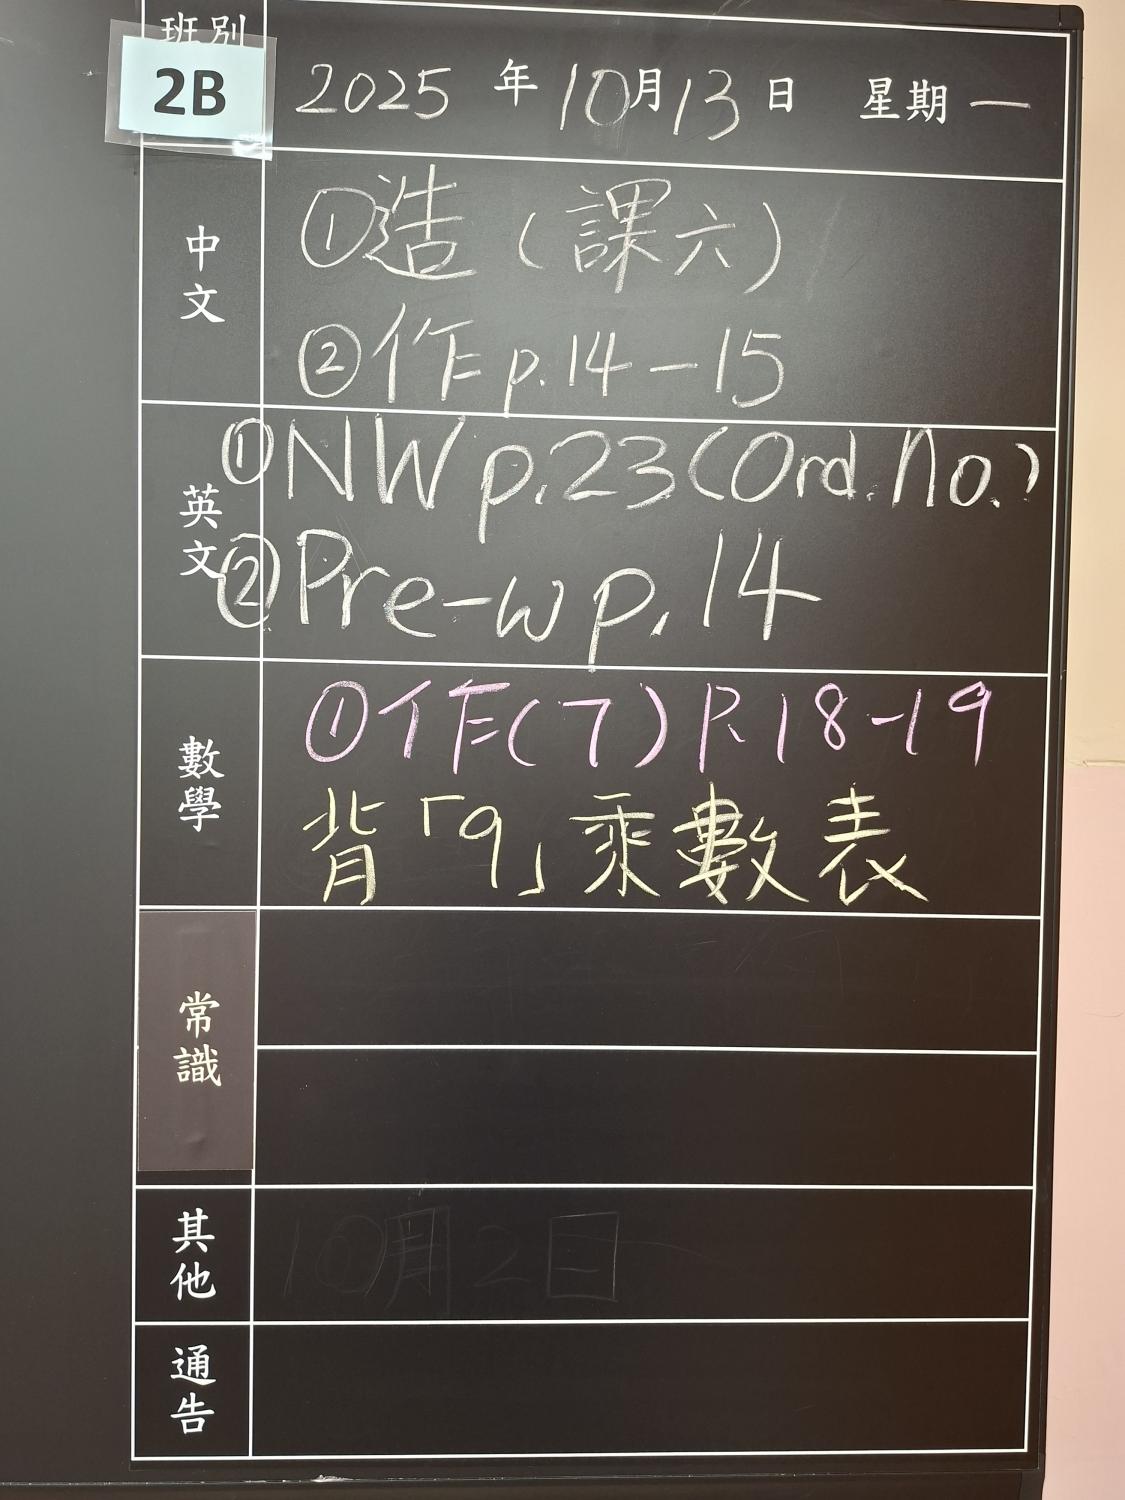 班別
2B
2025 年 10月13日 星期一
中文
①造(課六)
②作p.14-15
英文
①NW p.23(Ord. no.)
②Pre-w p.14
數學
①作(7)P.18-19
背「9」乘數表
常識
其他
10月2日
通告